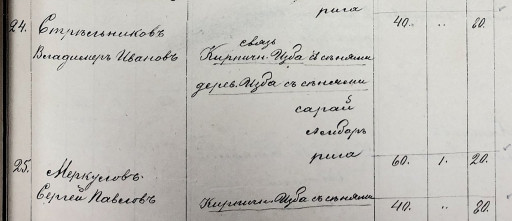 рига 40. .. 80.
24. Стрѣльниковъ
связь
Владимеръ Ивановъ Кирпичн. Изба съ сѣнями
дерев. Изба съ сѣнями
сарай
Амбаръ
рига 60. 1. 20.
25. Меркуловъ
Сергей Павловъ Кирпичн. Изба съ сѣнями 40. .. 80.